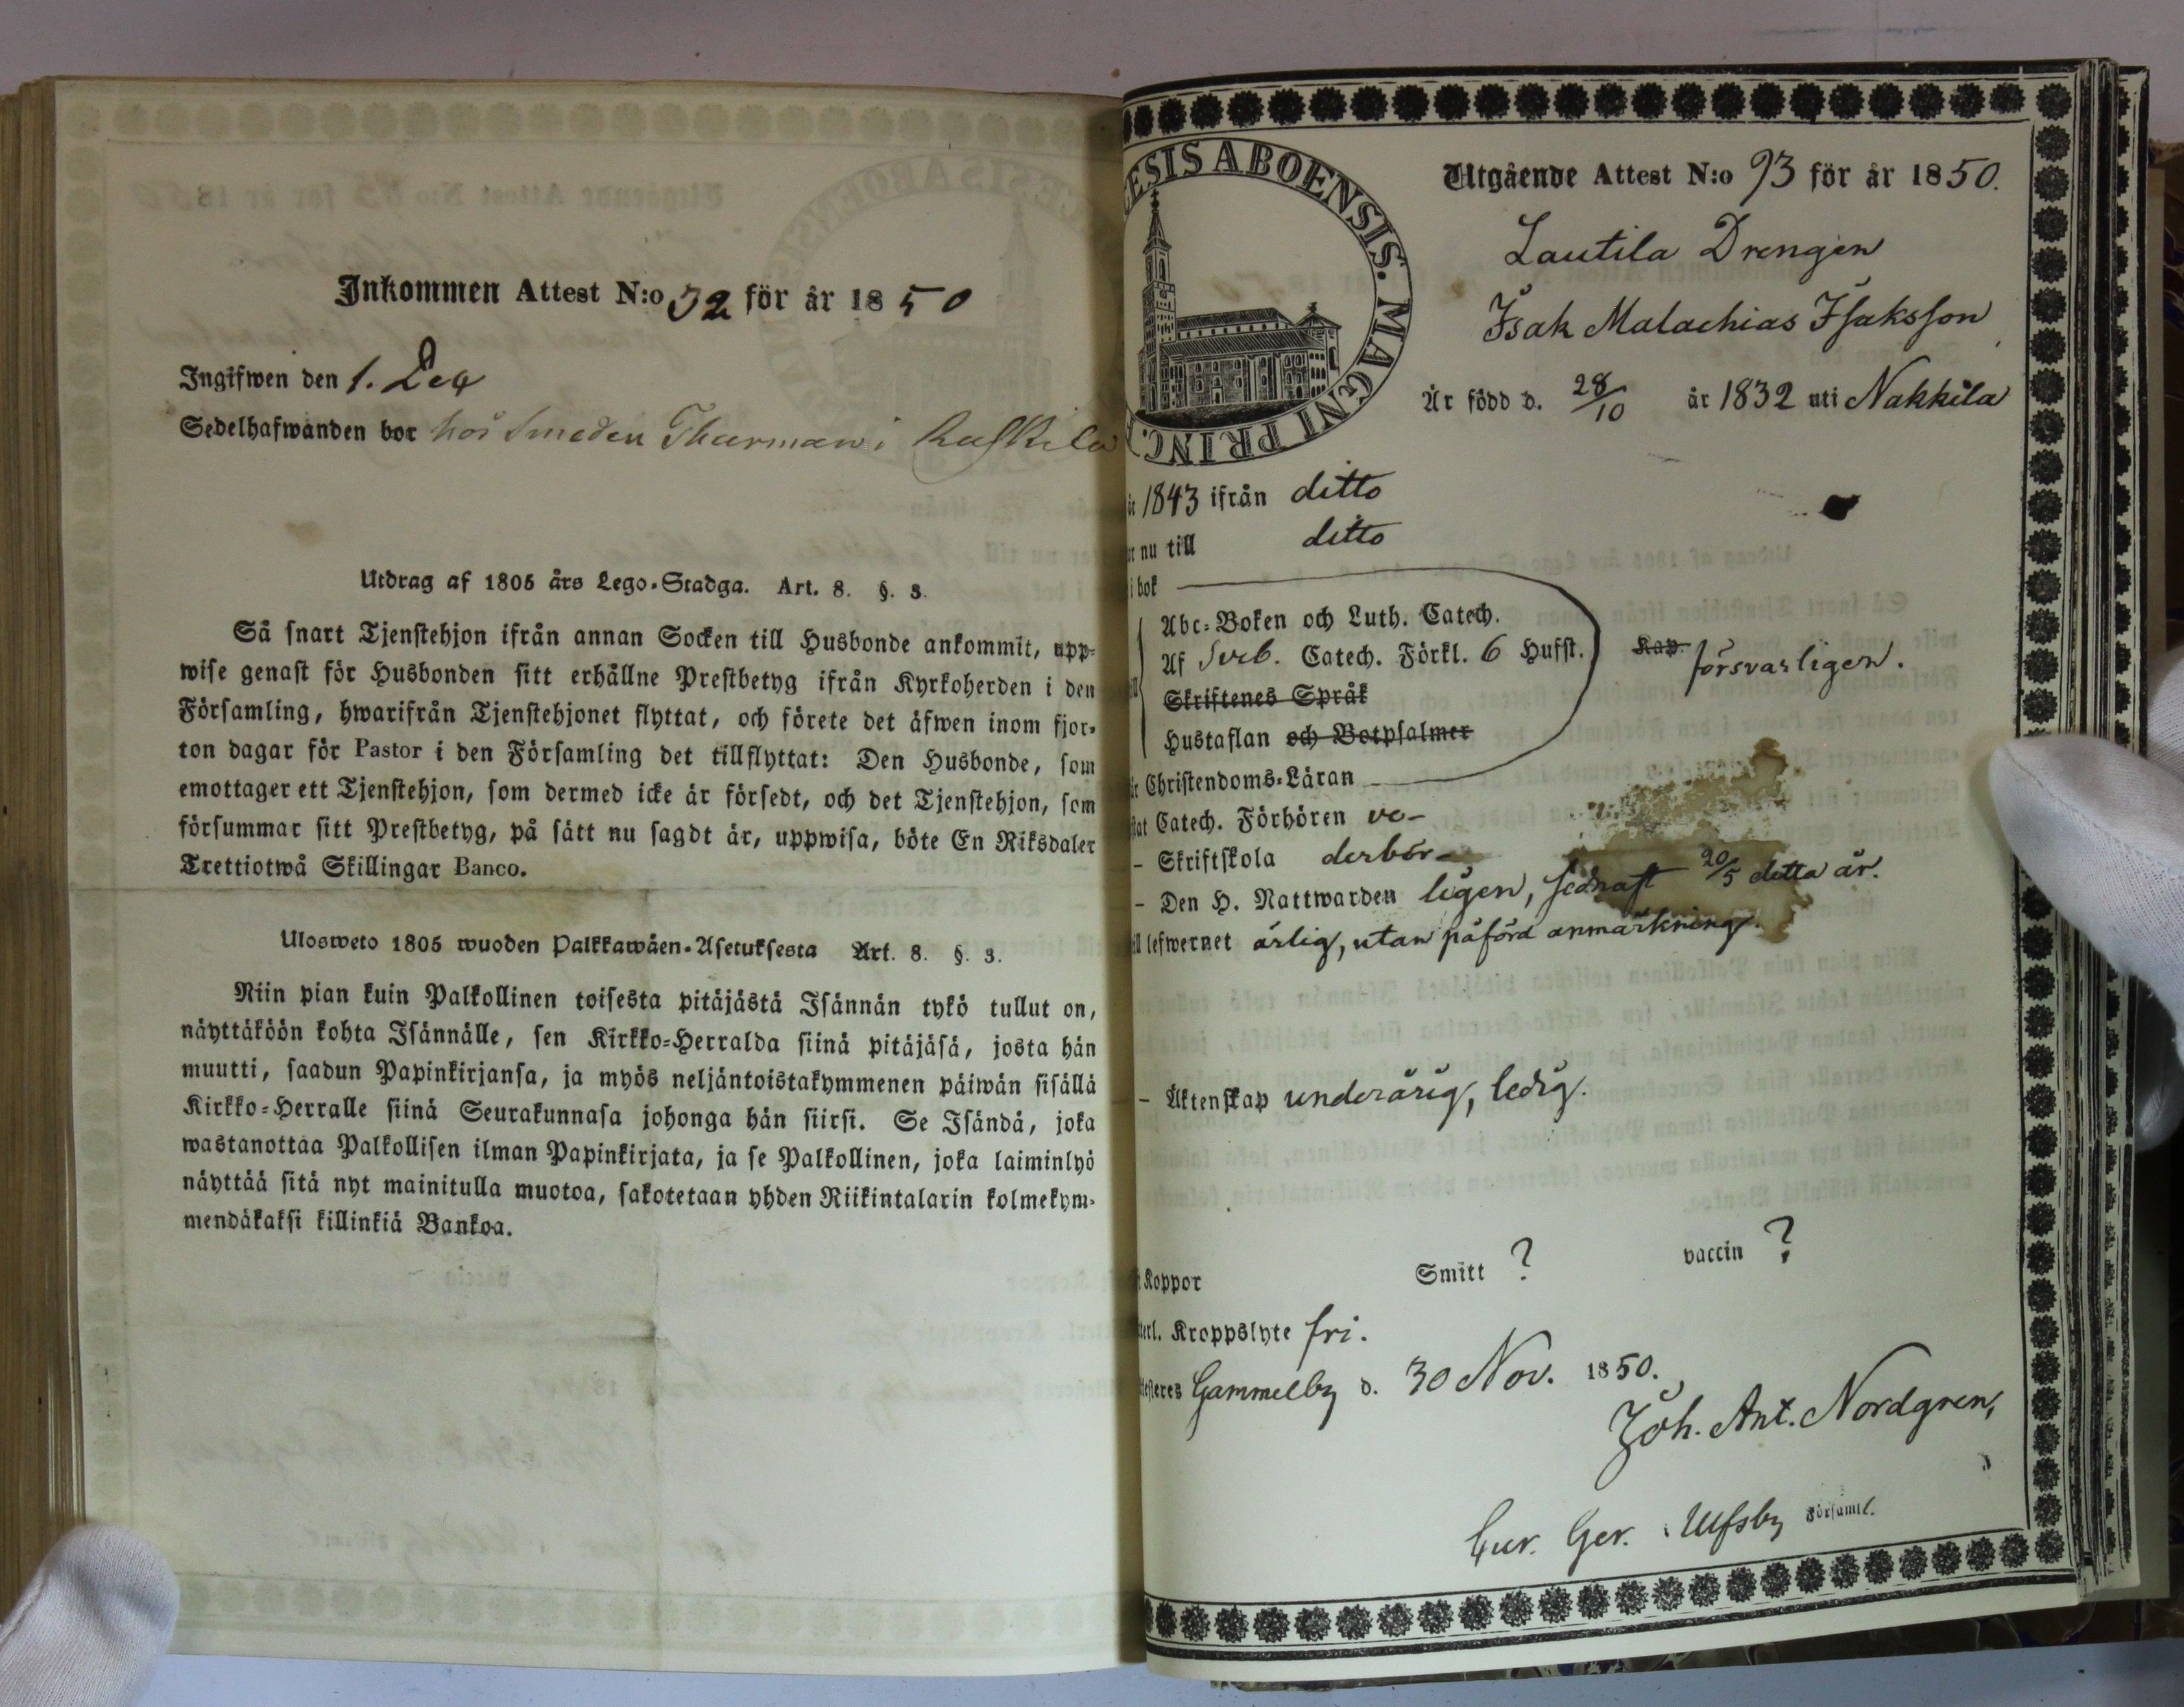 Inkommen Attest N:o 32 för år 1850
Ingifwen den 1. Dec
Sedelhafwanden bor hos Smeden Thurman i
Utdrag af 1805 års Lego-Stadga. Art. 8. §. 3.
Så snart Tjenstehjon ifrån annan Socken till Husbonde ankommit, upp-
wise genast för Husbonden sitt erhållne Prestbetyg ifrån Kyrkoherden i den
Församling, hwarifrån Tjenstehjonet flyttat, och förete det äfwen inom fjor-
ton dagar för Pastor i den Församling det tillflyttat: Den Husbonde, som
emottager ett Tjenstehjon, som dermed icke är försedt, och det Tjenstehjon, som
försummar sitt Prestbetyg, på sätt nu sagdt är, uppwisa, böte En Riksdaler
Trettiotwå Skillingar Banco.
Ulosweto 1805 wuoden Palkkawäen-Asetuksesta Art. 8. §. 3.
Niin pian kuin Palkollinen toisesta pitäjästä Isännän tykö tullut on,
näyttäköön kohta Isännälle, sen Kirkko-Herralda siinä pitäjäsä, josta hän
muutti, saadun Papinkirjansa, ja myös neljäntoistakymmenen päiwän sisällä
Kirkko-Herralle siinä Seurakunnasa johonga hän siirsi. Se Isändä, joka
wastanottaa Palkollisen ilman Papinkirjata, ja se Palkollinen, joka laiminlyö
näyttää sitä nyt mainitulla muotoa, sakotetaan yhden Riikintalarin kolmekym-
mendäkaksi killinkiä Bankoa.
ESIS ABOENSIS. MAGNI PRINC.
Utgående Attest N:o 93 för år 1850.
Lautila Drengen
Isak Malachias Isaksson
Är född d. 28/10 år 1832 uti Nakkila
1843 ifrån ditto
nu till ditto
i bok
Abc-Boken och Luth. Catech.
Af Sveb. Catech. Förkl. 6 Hufst. Kap försvarligen.
Skriftenes Språk
Hustaflan och Botpsalmer
Christendoms-Läran
Catech. Förhören ve-
- Skriftskola derbör-
- Den H. Nattwarden ligen, sednast 20/5 detta år.
lefwernet ärlig, utan påförd anmärkning.
- Äktenskap underårig, ledig.
Koppor Smitt ? vaccin ?
Kroppslyte fri.
Gammelby d. 30 Nov. 1850.
Joh. Ant. Nordgren,
Cur. Ger. i Ulfsby Församl.